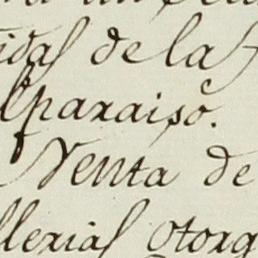 idas de la
lparaiso.
Venta de
llerias otorg